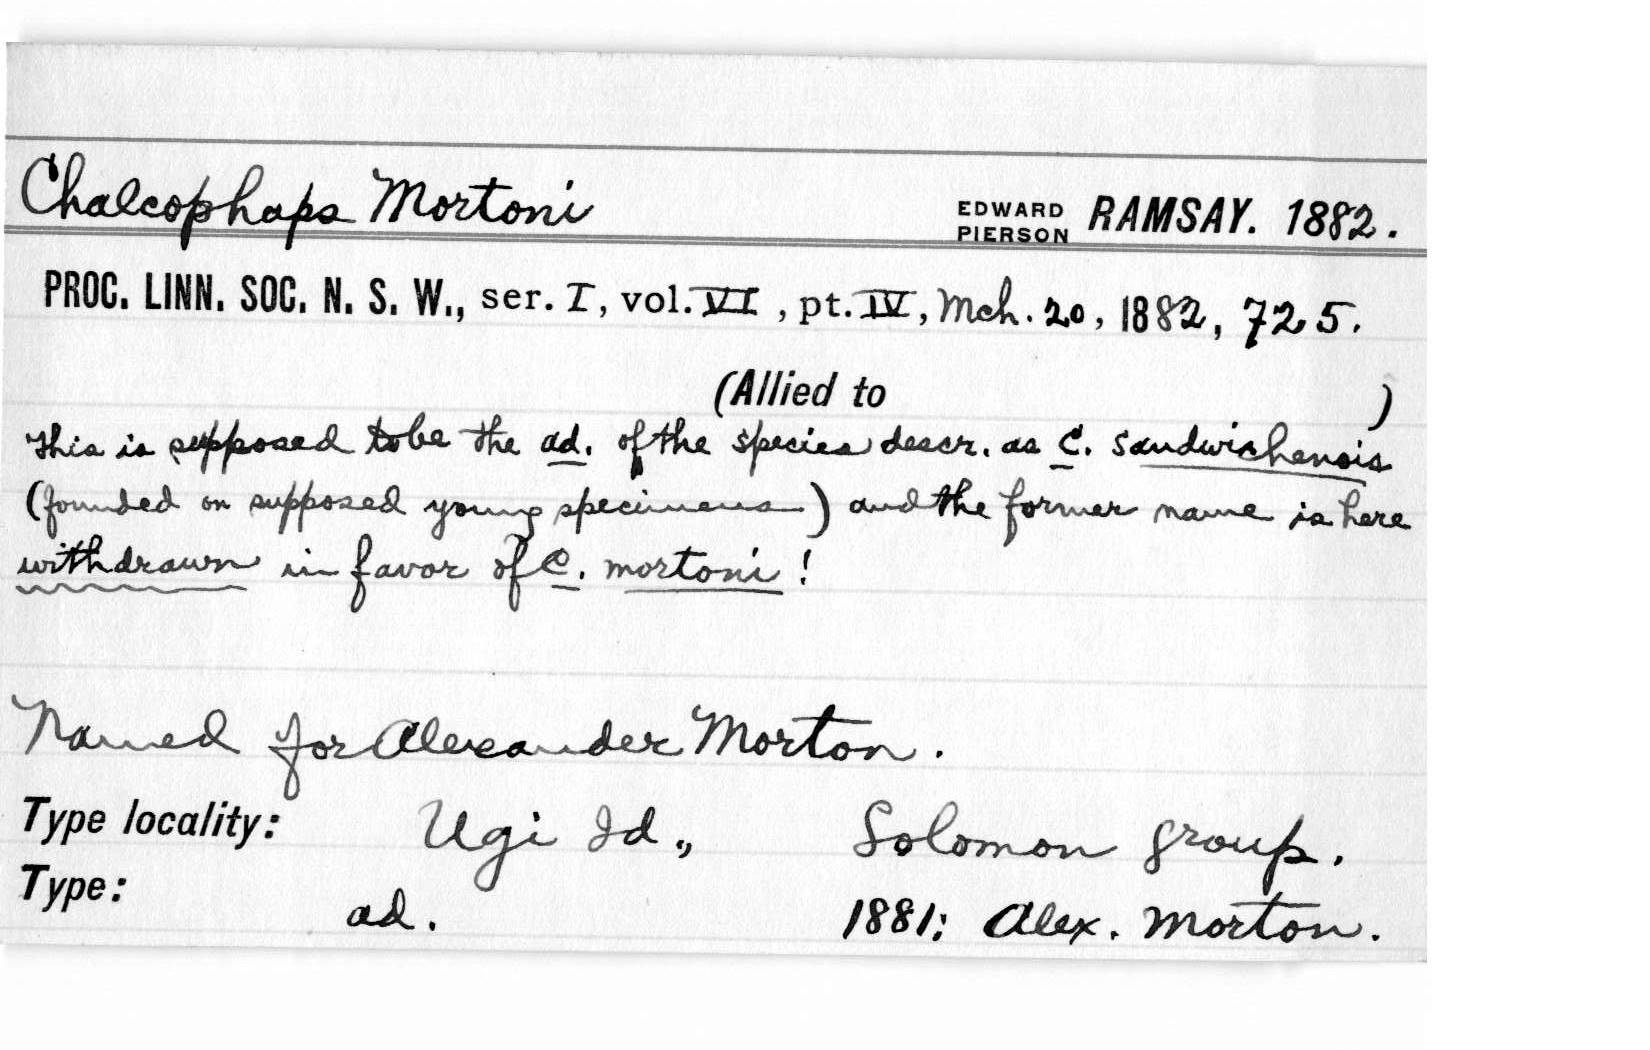 Chalcophaps Mortoni EDWARD PIERSON RAMSAY. 1882.
PROC. LINN. SOC. N. S. W., ser. I, vol. VI, pt. IV, Mch. 20, 1882, 725.
(Allied to )
This is supposed to be the ad. of the species descr. as C. sandwichensis
(founded on supposed young specimens) and the former name is here
withdrawn in favor of C. mortoni!
Named for Alexander Morton.
Type locality: Ugi Id., Solomon group.
Type: ad. 1881; Alex. Morton.